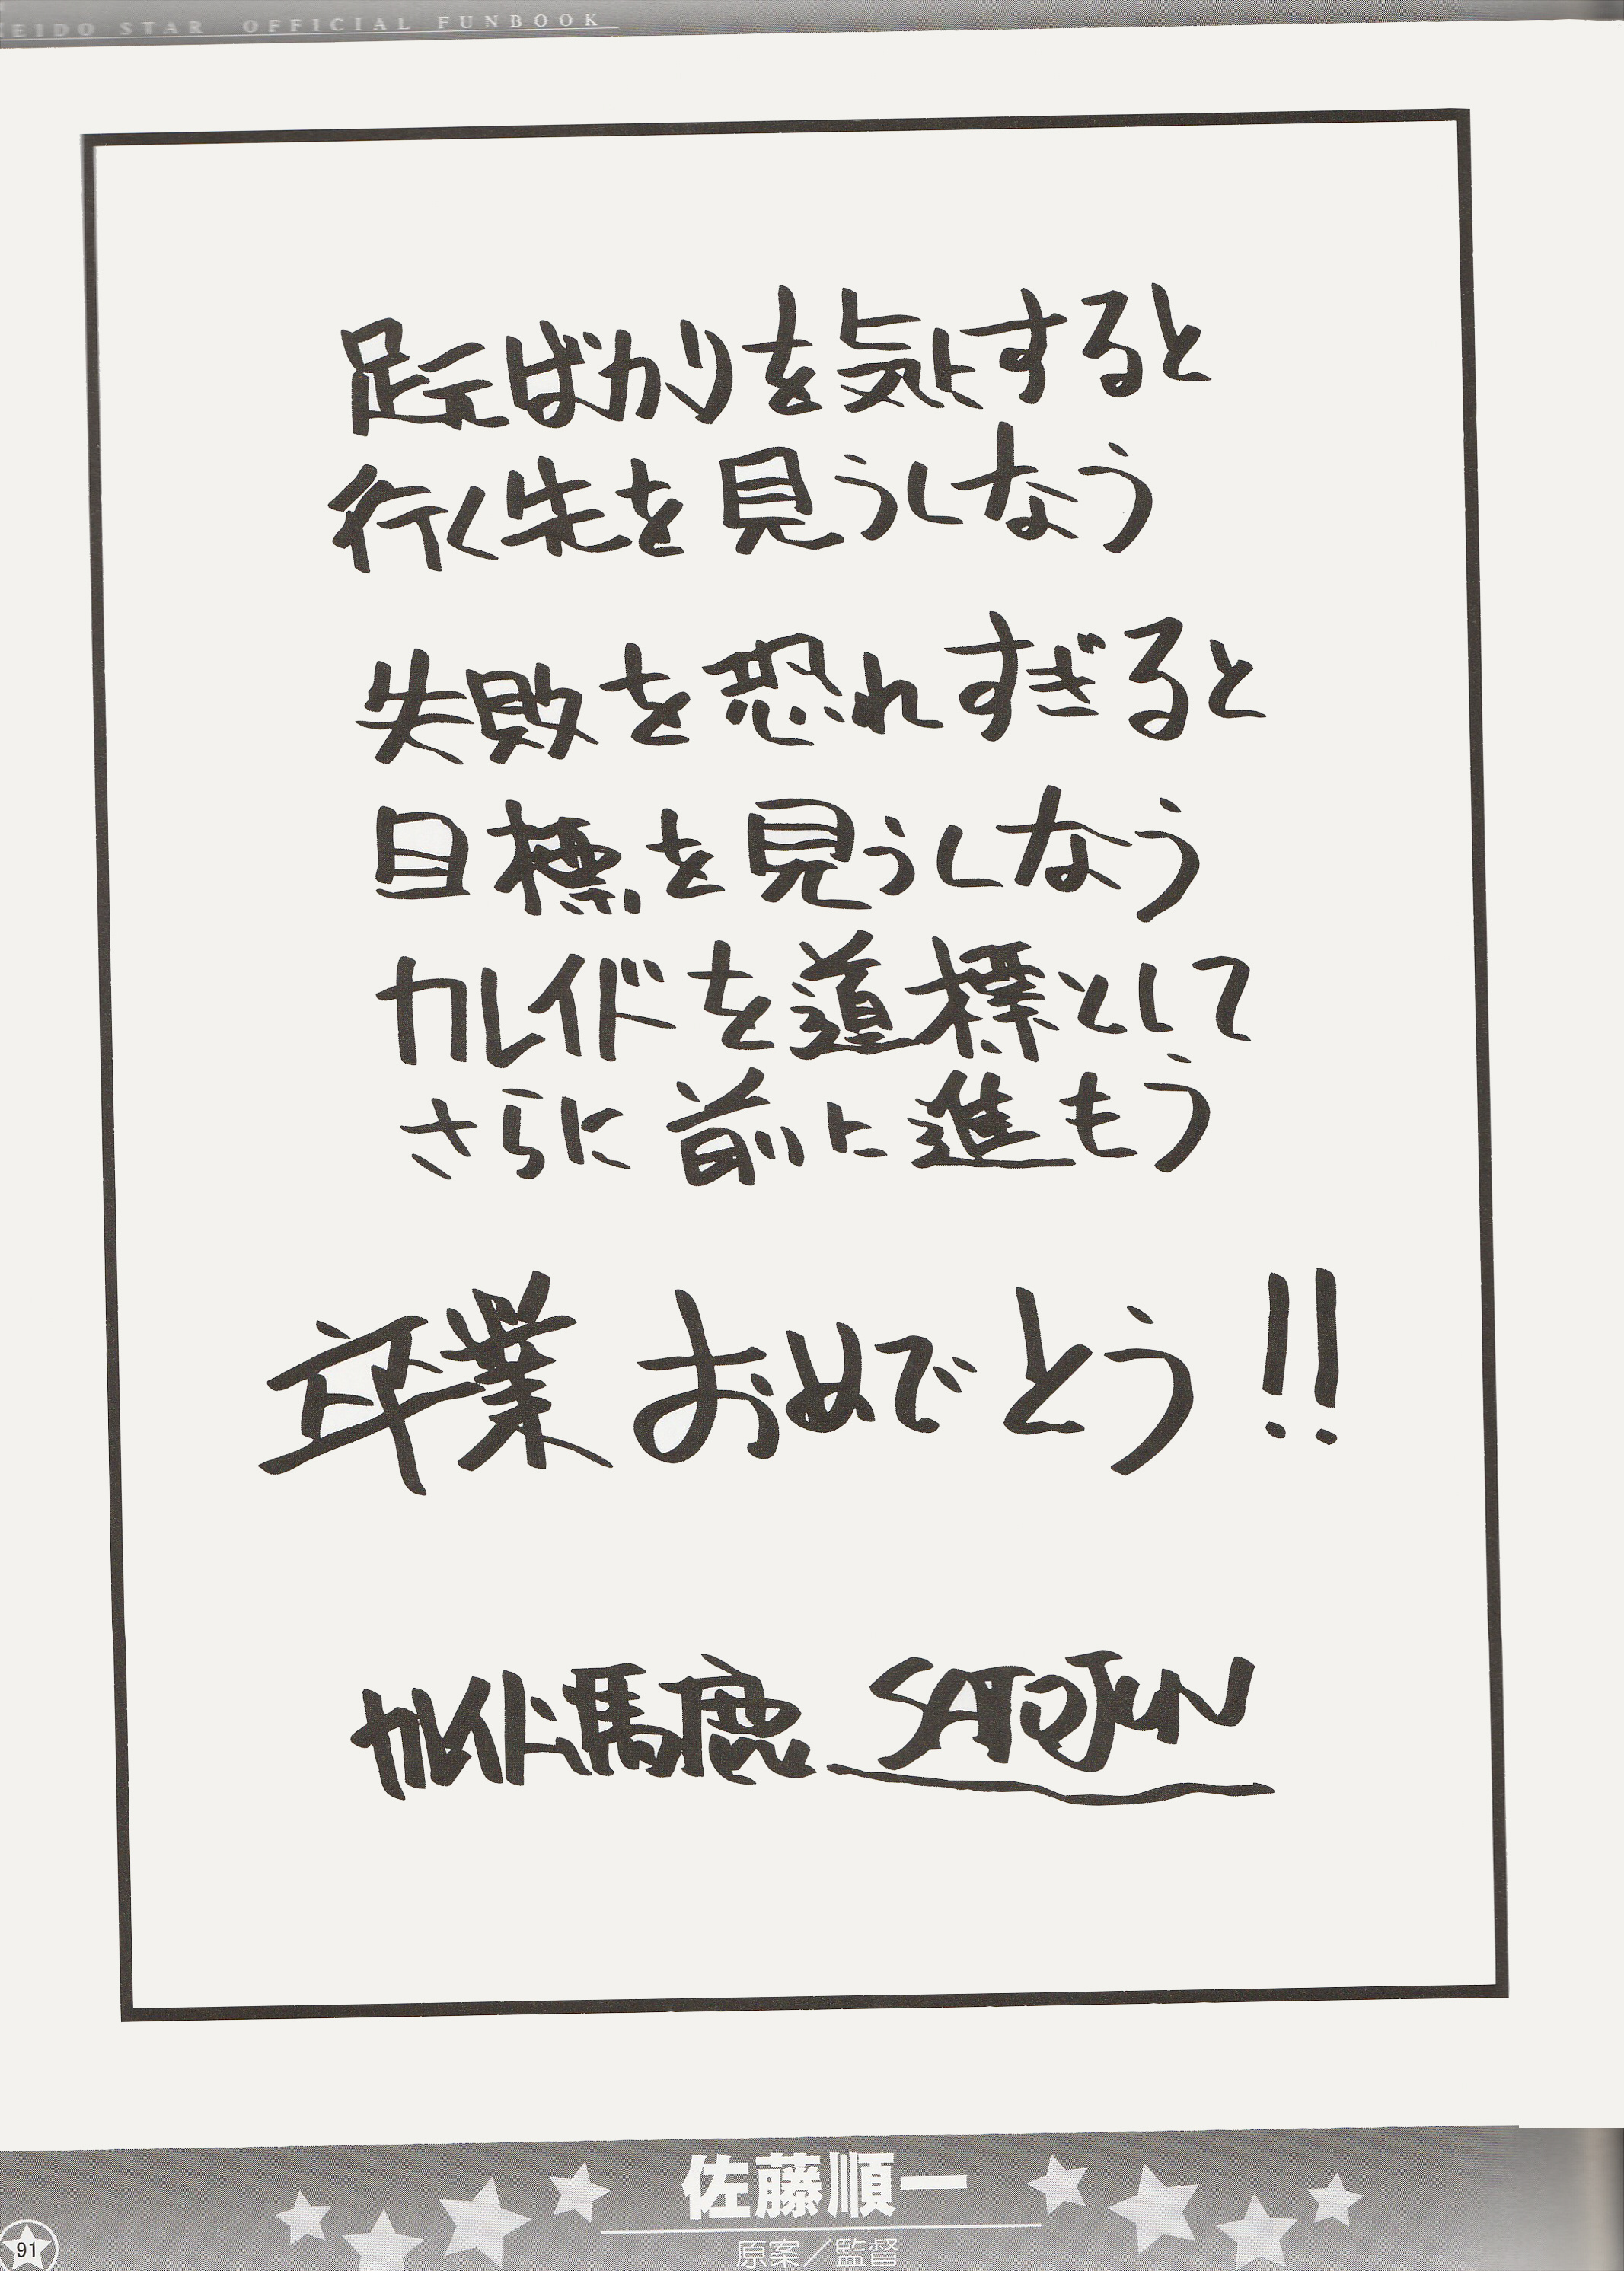 EIDO STAR OFFICIAL FUNBOOK
足元ばかりを気にすると
行く先を見うしなう
失敗を恐れすぎると
目標を見うしなう
カレイドを道標として
さらに前に進もう
卒業おめでとう!!
カレイド馬鹿 SATOJUN
佐藤順一
原案/監督
91